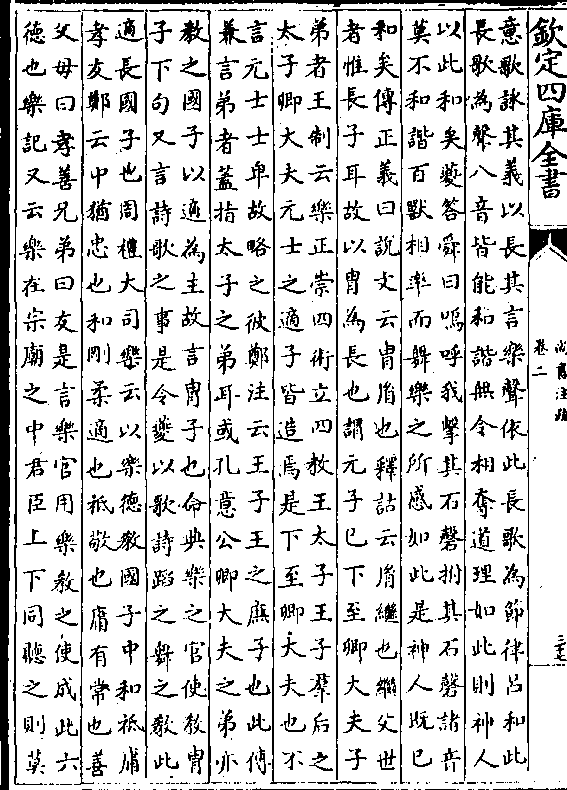 欽定四庫全書
尚書注疏
卷二
意歌詠其義以長其言樂聲依此長歌為節律呂和此
長歌為聲八音皆能和諧無令相奪道理如此則神人
以此和矣夔答舜曰嗚呼我擊其石磬拊其石磬諸音
莫不和諧百獸相率而舞樂之所感如此是神人既已
和矣傳正義曰說文云冑𦙍也釋詁云𦙍繼也繼父世
者惟長子耳故以冑為長也謂元子已下至卿大夫子
弟者王制云樂正崇四術立四教王太子王子羣后之
太子卿大夫元士之適子皆造焉是下至卿大夫也不
言元士士卑故略之彼鄭注云王子王之庶子也此傳
兼言弟者蓋指太子之弟耳或孔意公卿大夫之弟亦
教之國子以適為主故言冑子也命典樂之官使教冑
子下句又言詩歌之事是令夔以歌詩蹈之舞之教此
適長國子也周禮大司樂云以樂德教國子中和祗庸
孝友鄭云中猶忠也和剛柔適也祗敬也庸有常也善
父母曰孝善兄弟曰友是言樂官用樂教之使成此六
德也樂記又云樂在宗廟之中君臣上下同聽之則莫